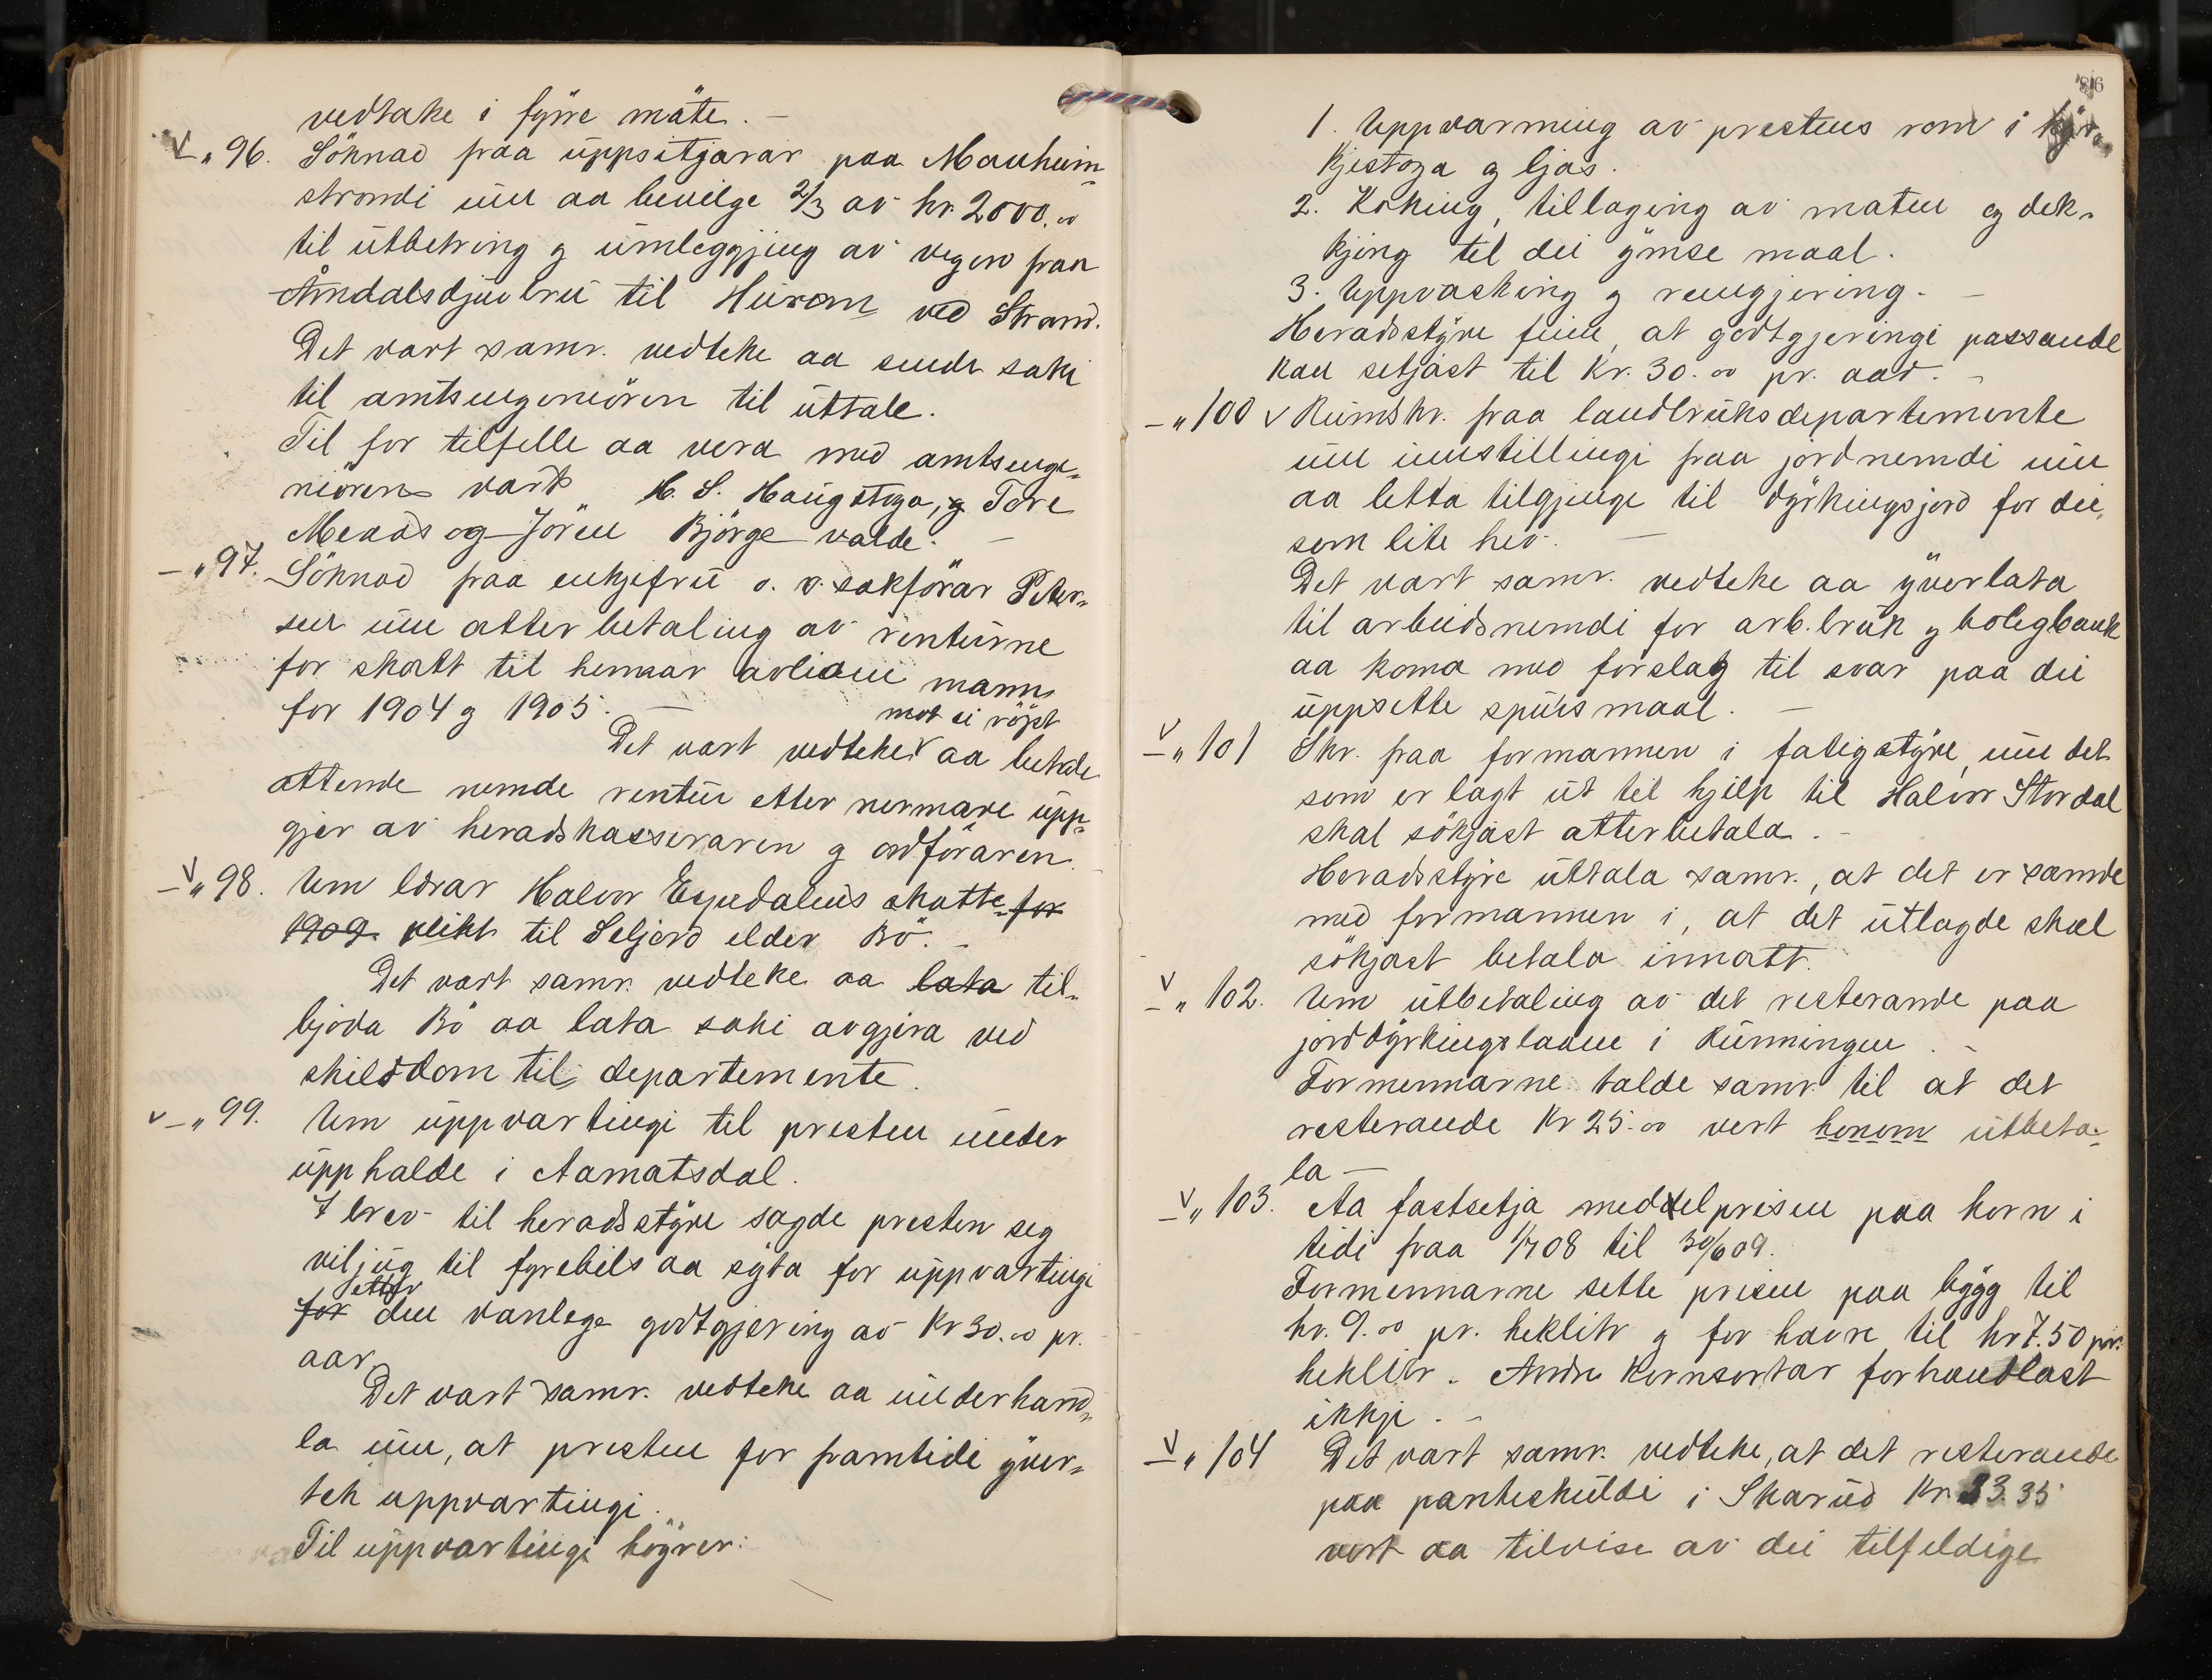 vedtake i fyrre møte. –
V „ 96. Söknad fraa uppsitjarar paa Manheim
strondi um aa bevilge 2/3 av kr. 2000.00
til utbetring og umleggjing av vegen fraa
Åmdalsdjuvbru til Hurom ved Strand.
Det vart samr. vedteke aa sende saki
til amtsingeniören til uttale.
Til for tilfelle aa vera med amtsinge-
niören vart H. S. Haugstoga, og Tore
Meaas og Jörun Björge valde. –
– „ 97. Söknad fraa enkjefru o. r. sakförar Peter-
sen um atterbetaling av renturne
for skatt til hennar avlidne mann
for 1904 og 1905. –
mot ei röyst
Det vart vedteke V aa betale
attende nemde rentur etter nermare upp-
gjer av heradskasseraren og ordföraren.
V – „ 98. Um lærar Halvor Espedalens skatte- for
1909 plikt til Seljord elder Bö. –
Det vart samr. vedteke aa lata til-
bjoda Bö aa lata saki avgjera ved
skilsdom til departemente.
V – „ 99. Um uppvartingi til presten under
upphalde i Aamatsdal.
I brev til heradsstyre sagde presten seg
viljug til fyrebils aa syta for uppvartingi
etter
for den vanlege godtgjering av Kr 30.00 pr.
aar.
Det vart samr. vedteke aa underhand-
la um, at presten for framtidi yver-
tek uppvartingi.
Til uppvartingi höyrer:
86
1. Uppvarming av prestens rom i
kjestoga og ljos.
2. Koking, tillaging av maten og dek-
kjing til dei ymse maal.
3. Uppvasking og reingjering. –
Heradsstyre finn, at godtgjeringi passande
kan setjast til Kr. 30.00 pr. aar. –
– „ 100 V Rundskr. fraa landbruksdepartemente
um innstillingi fraa jordnemdi um
aa letta tilgjenge til dyrkingsjord for dei,
som lite hev. –
Det vart samr. vedteke aa yverlata
til arbeidsnemdi for arb.bruk og boligbank
aa koma med forslag til svar paa dei
uppsette spursmaal. –
V – „ 101 Skr. fraa formannen i fatigstyre, um det
som er lagt ut til hjelp til Halvor Stordal
skal sökjast atterbetala. –
Heradsstyre uttala samr., at det er samde
med formannen i, at det utlagde skal
sökjast betala innatt.
V – „ 102. Um utbetaling av det resterande paa
jorddyrkingslaanet i Runningen. –
Formennarne talde samr. til at det
resterande Kr 25.00 vert honom utbeta-
la –
V – „ 103. Aa fastsetja meddelprisen paa korn i
tidi fraa 1/7 08 til 30/6 09.
Formennarne sette prisen paa bygg til
kr. 9.00 pr. heklitr og for havre til kr 7.50 pr.
heklitr. Andre kornsortar forhandlast
ikkje. –
V – „ 104 Det vart samr. vedteke, at det resterande
paa panteskuldi i Skarud Kr. 33.35
vert aa tilvise av dei tilfeldige